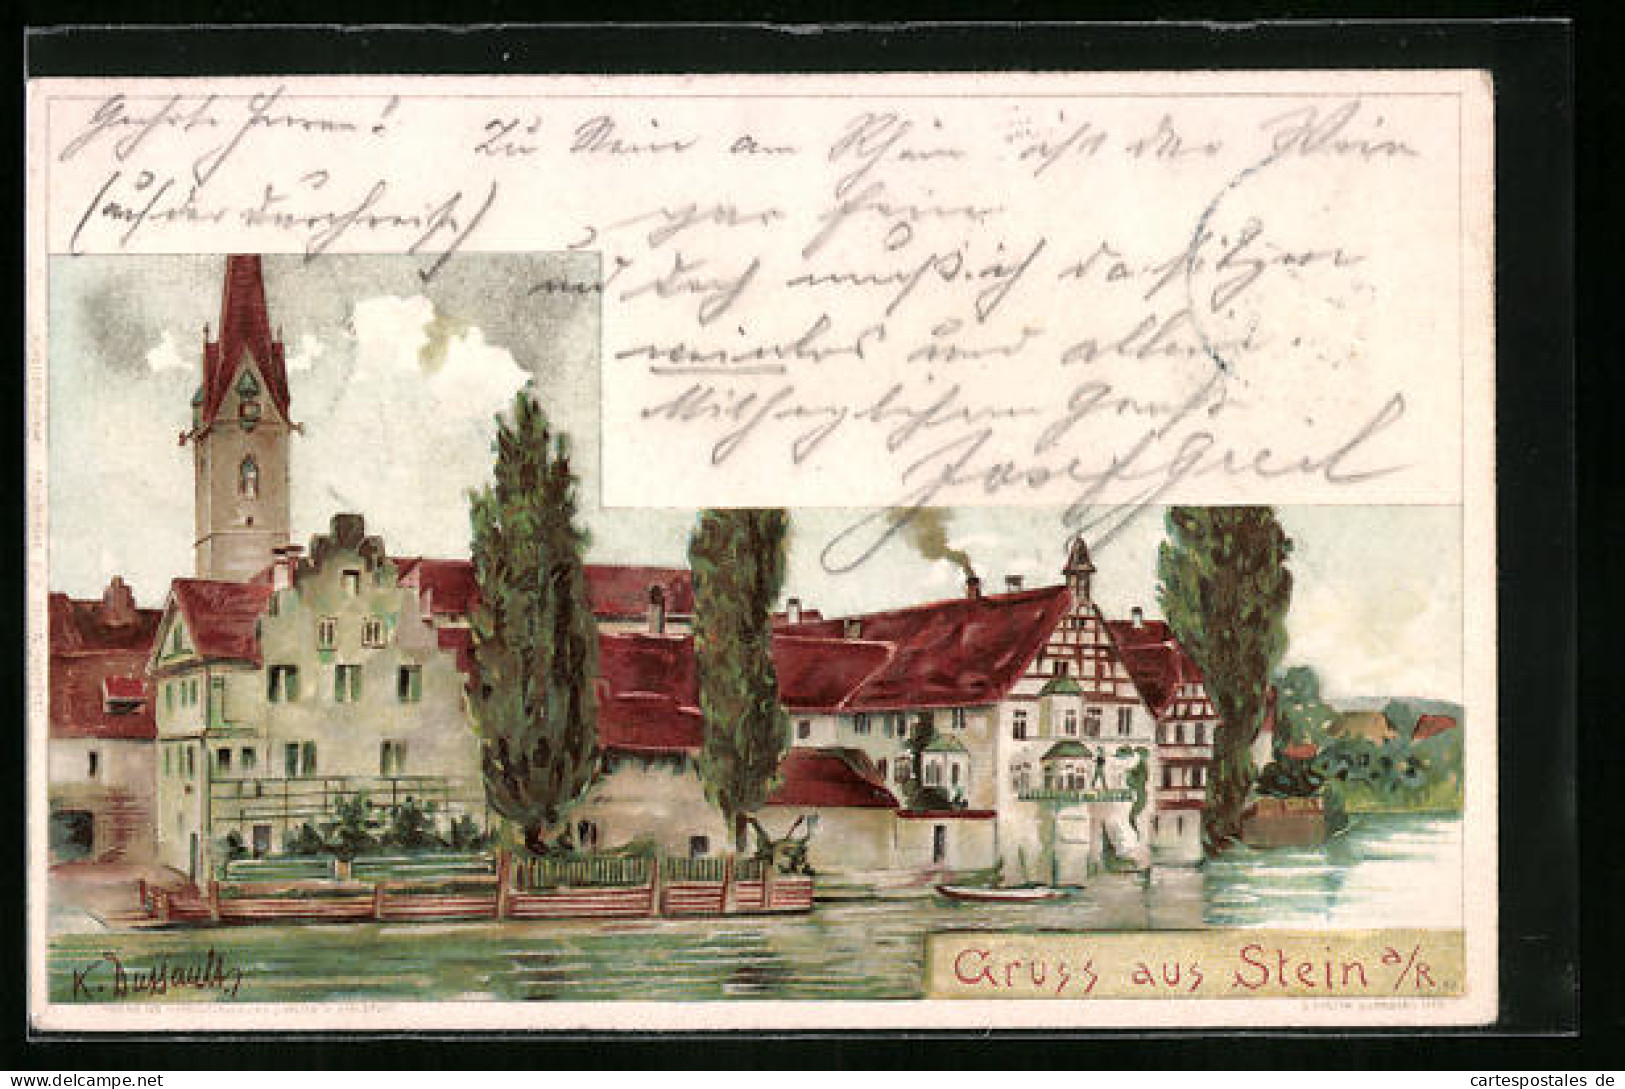 Geehrte Herren!
(auf der Durchreise)
Zu Stein am Rhein ist der Wein
gar fein
und doch muß ich da sitzen
weinlos und allein.
Gruß
Josef Greil
K. Dussault
Gruss aus Stein a/R
cartespostales de